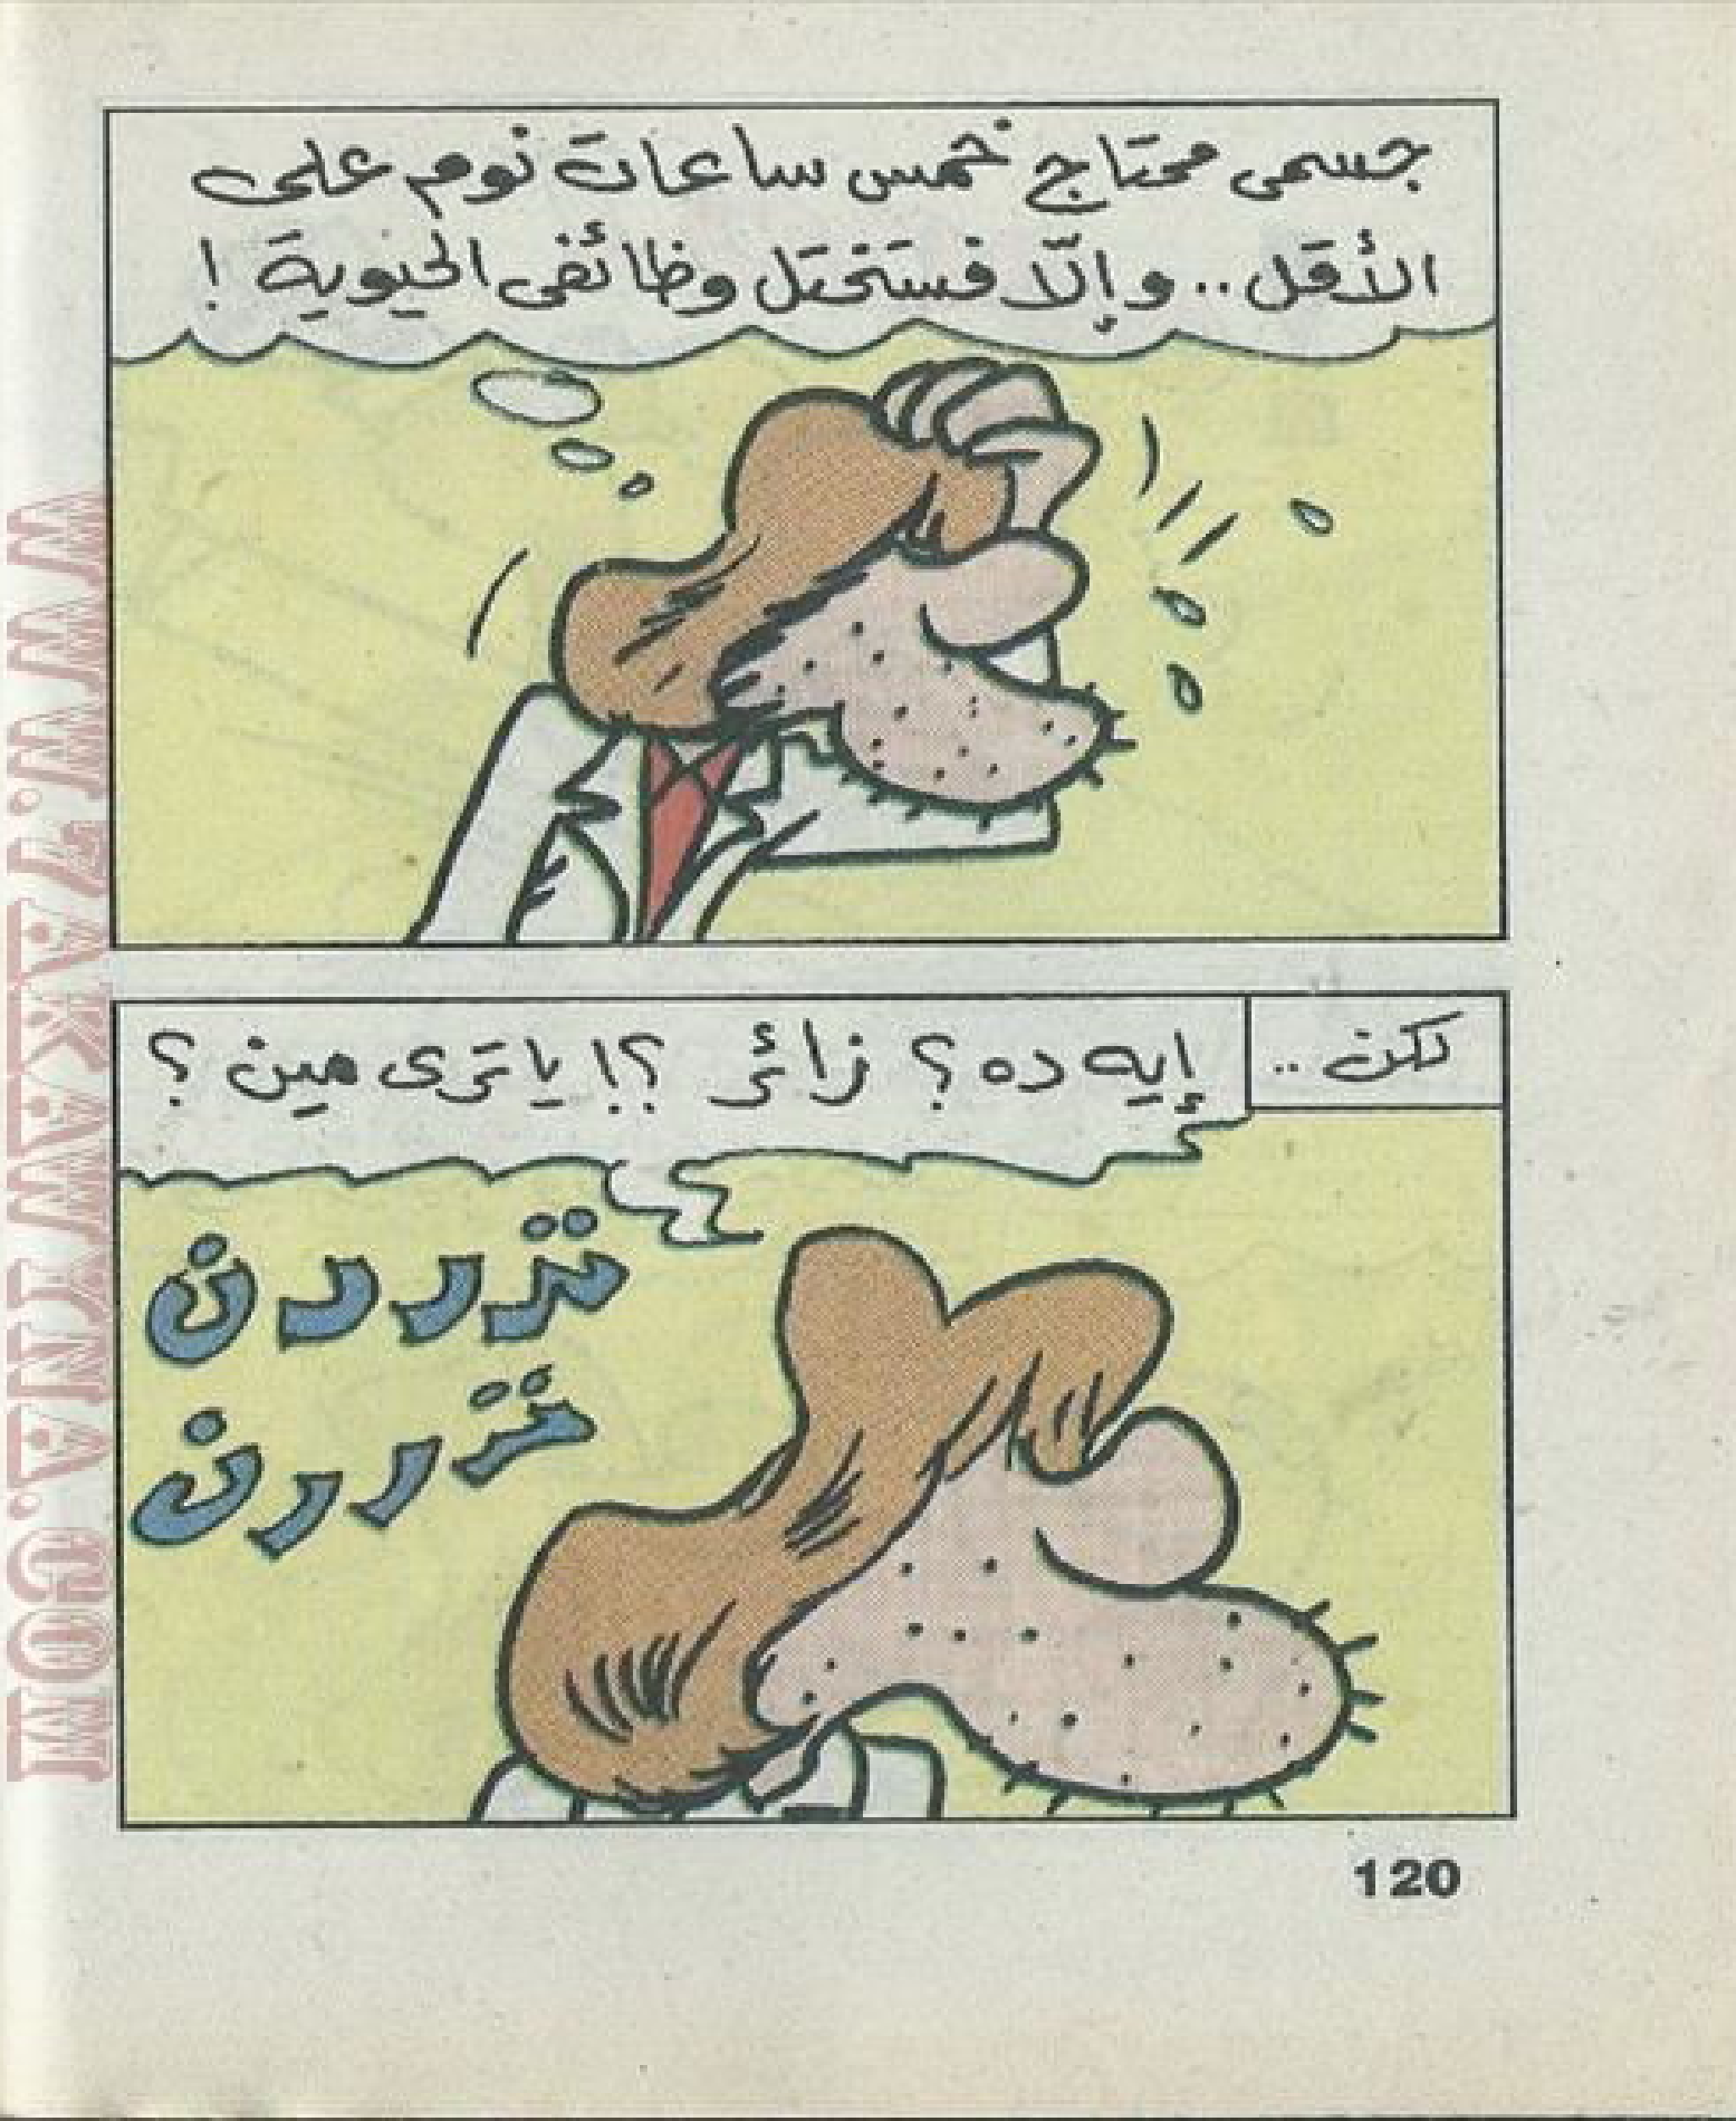 جسمى محتاج خمس ساعات نوم على
الأقل.. وإلّا فستختل وظائفى الحيوية !
لكن ..
إيه ده ؟ زائر ؟! يا ترى مين ؟
تررررن
تررررن
120
WWW.7AKAWYNA.COM